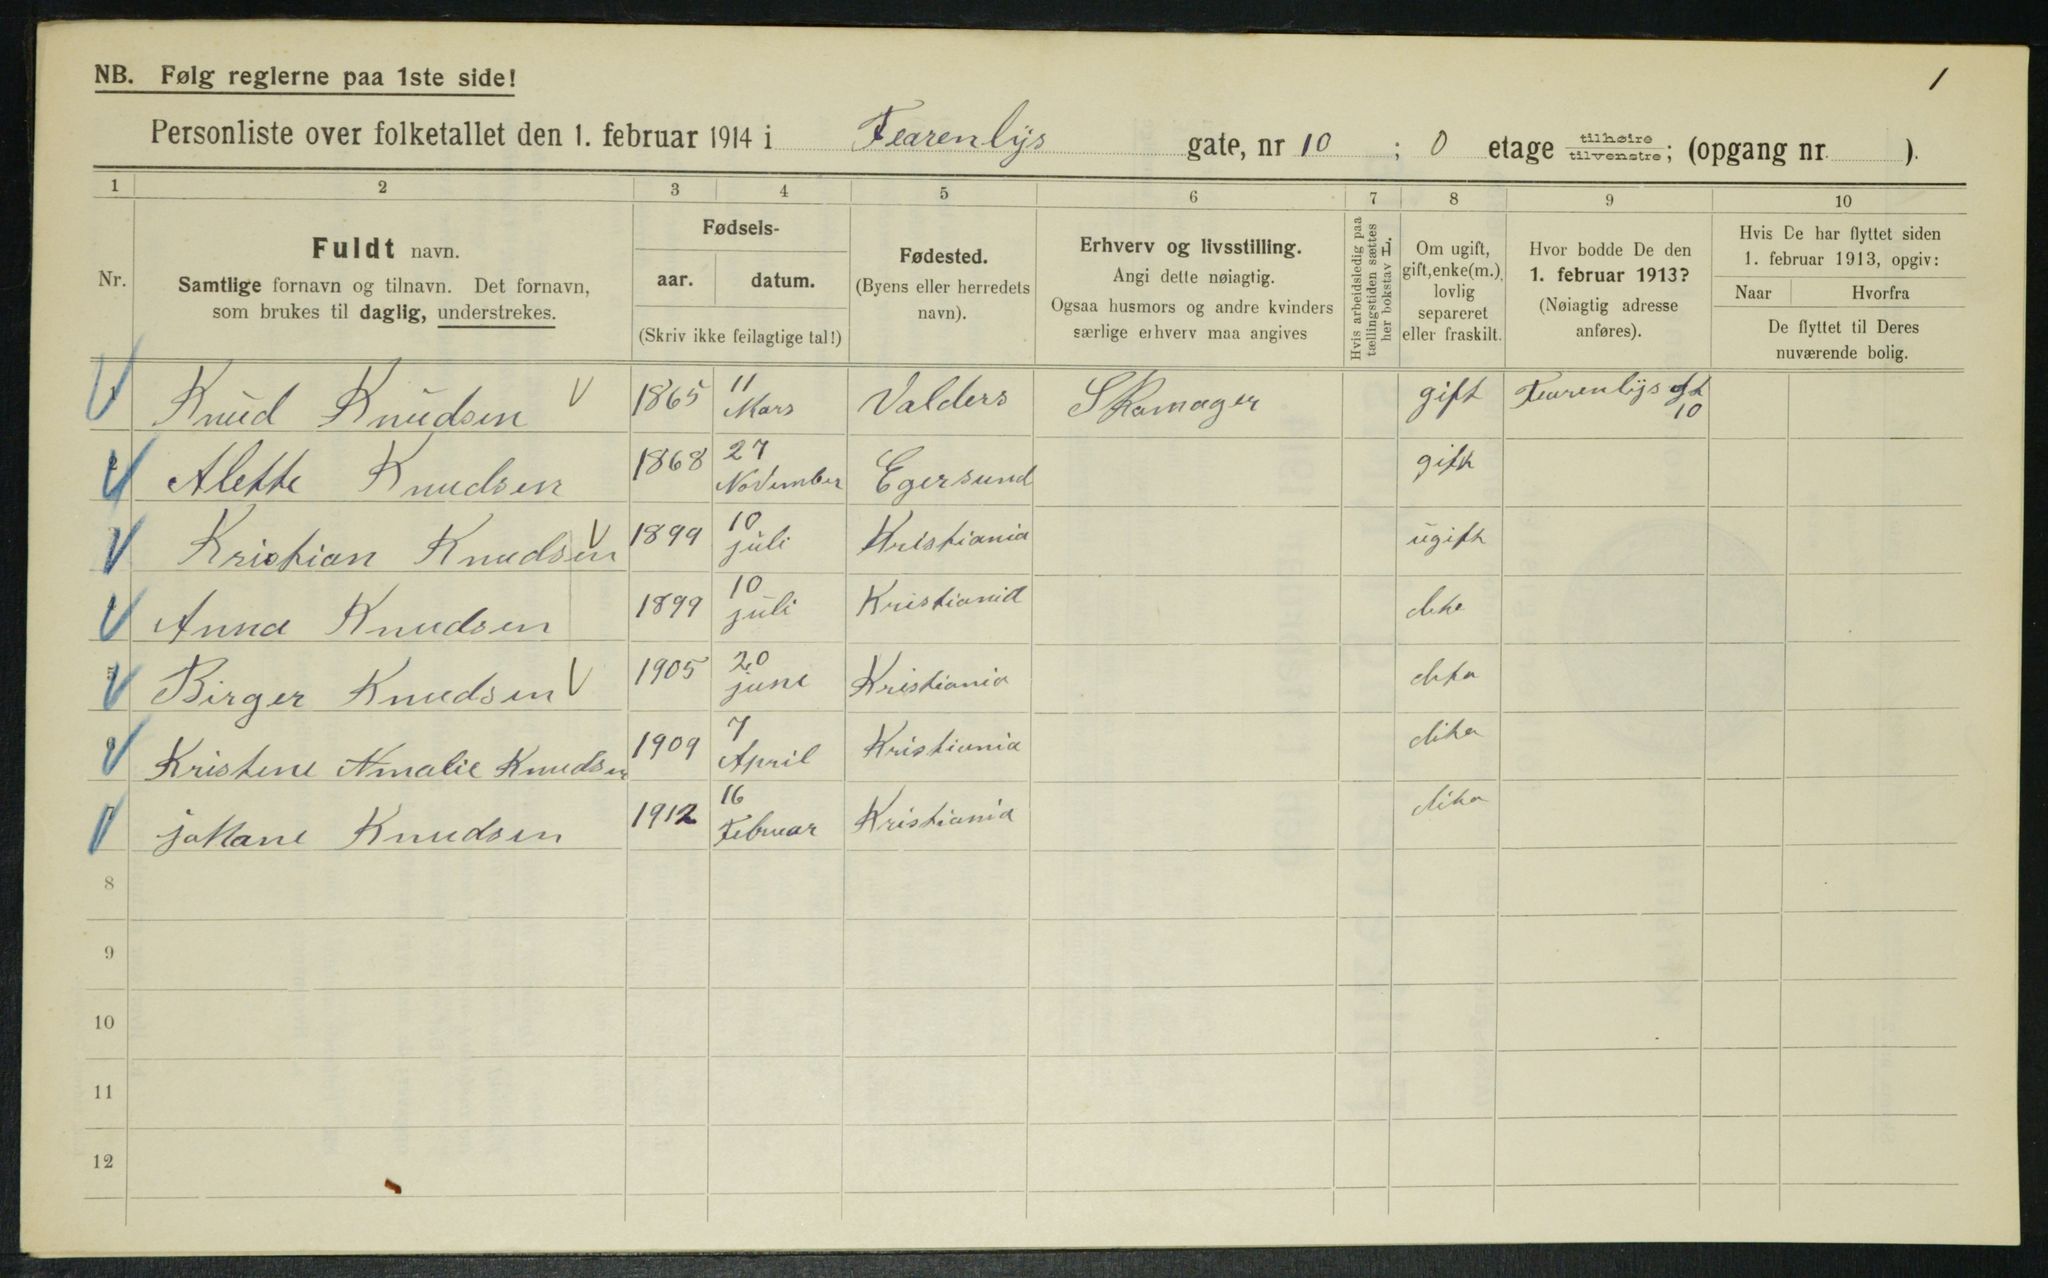 1
NB. Følg reglerne paa 1ste side!
Personliste over folketallet den 1. februar 1914 i Fearenlys gate, nr 10 ; 0 etage tilhøire tilvenstre; (opgang nr. ).
1 2 3 4 5 6 7 8 9 10
Nr.
Fuldt navn.
Samtlige fornavn og tilnavn. Det fornavn,
som brukes til daglig, understrekes.
Fødsels-
aar. datum.
(Skriv ikke feilagtige tal!)
Fødested.
(Byens eller herredets
navn).
Erhverv og livsstilling.
Angi dette nøiagtig.
Ogsaa husmors og andre kvinders
særlige erhverv maa angives
Hvis arbeidsledig paa
tællingstiden sættes
her bokstav L.
Om ugift,
gift, enke(m.),
lovlig
separeret
eller fraskilt.
Hvor bodde De den
1. februar 1913?
(Nøiagtig adresse
anføres).
Hvis De har flyttet siden
1. februar 1913, opgiv:
Naar Hvorfra
De flyttet til Deres
nuværende bolig.
1 Knud Knudsen V 1865 11 Mars Valders Skomager gift Fearenlys gt 10
2 Alette Knudsen 1868 27 November Egersund gift
3 Kristian Knudsen V 1899 10 juli Kristiania ugift
4 Anna Knudsen 1899 10 juli Kristiania dito
5 Birger Knudsen V 1905 20 june Kristiania dito
6 Kristene Amalie Knudsen 1909 7 April Kristiania dito
7 johane Knudsen 1912 16 Februar Kristiania dito
8
9
10
11
12